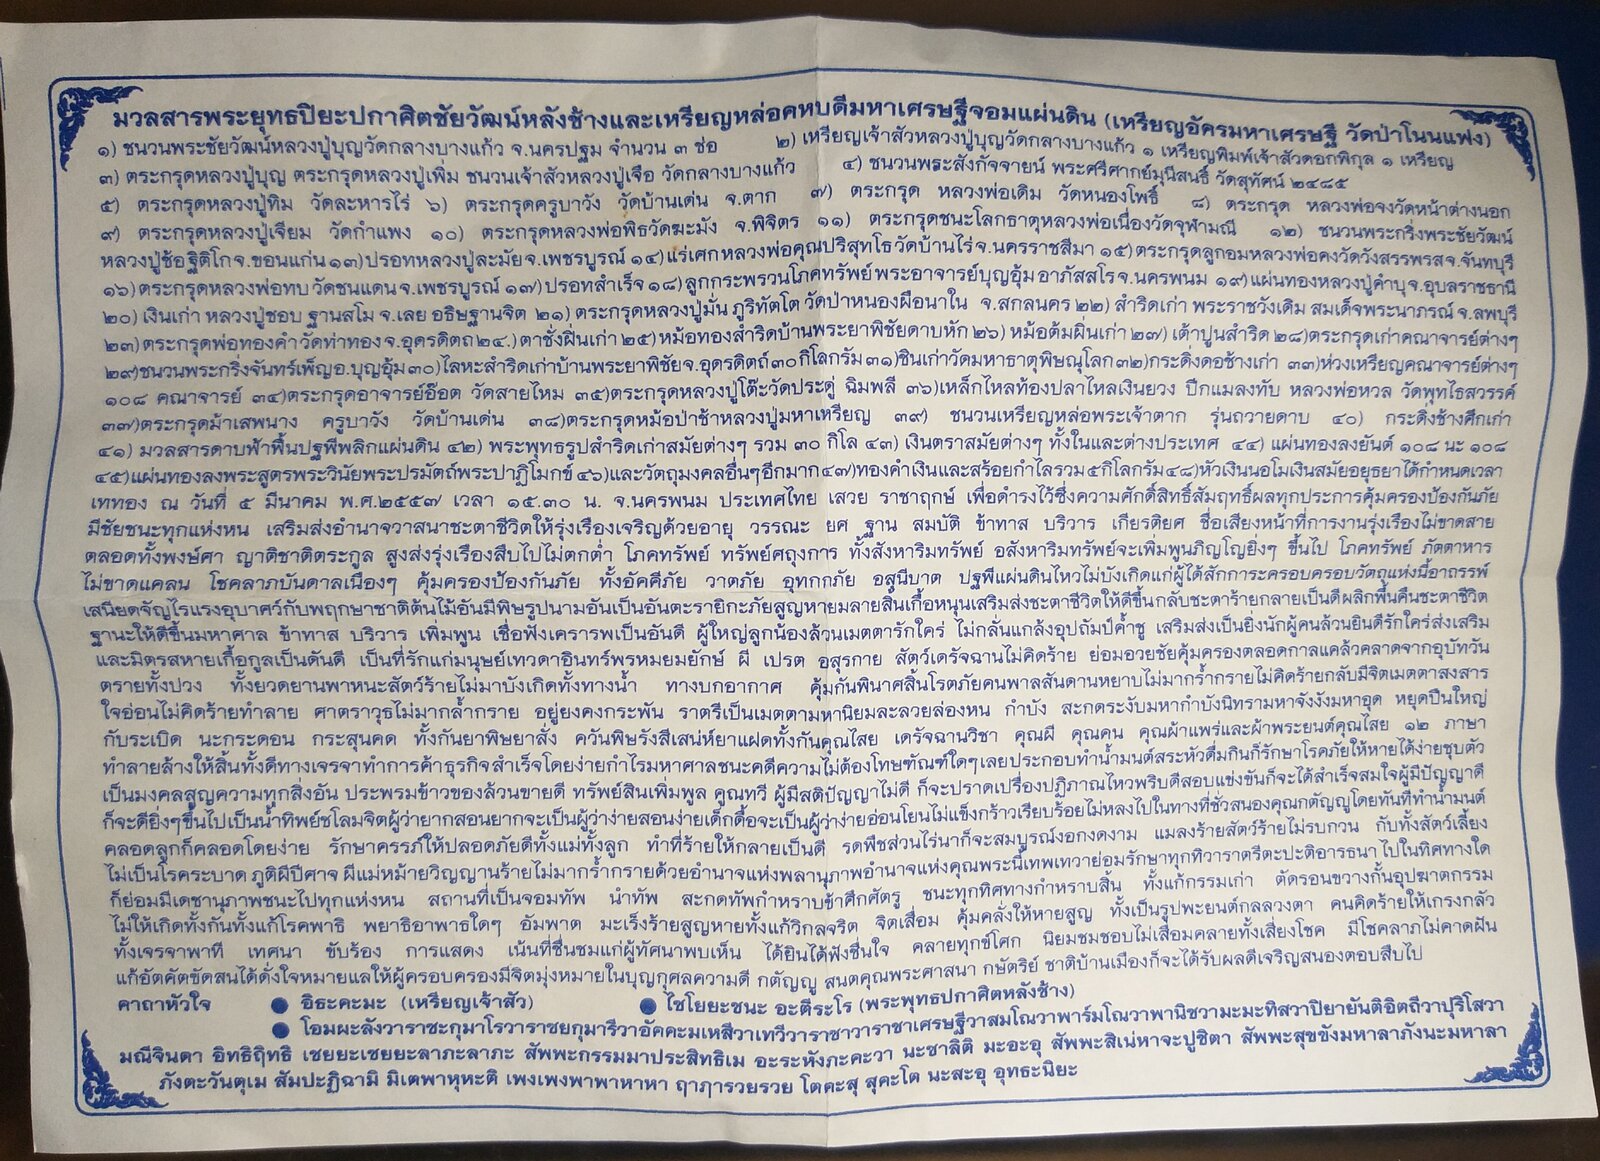 มวลสารพระยุทธปิยะปกาศิตชัยวัฒน์หลังช้างและเหรียญหล่อคหบดีมหาเศรษฐีจอมแผ่นดิน (เหรียญอัครมหาเศรษฐี วัดป่าโนนแพง)
๑) ชนวนพระชัยวัฒน์หลวงปู่บุญวัดกลางบางแก้ว จ.นครปฐม จำนวน ๓ ช่อ ๒) เหรียญเจ้าสัวหลวงปู่บุญวัดกลางบางแก้ว ๑ เหรียญพิมพ์เจ้าสัวดอกพิกุล ๑ เหรียญ
๓) ตระกรุดหลวงปู่บุญ ตระกรุดหลวงปู่เพิ่ม ชนวนเจ้าสัวหลวงปู่เจือ วัดกลางบางแก้ว ๔) ชนวนพระสังกัจจายน์ พระศรีศากย์มุนีสนธิ์ วัดสุทัศน์ ๒๔๘๕
๕) ตระกรุดหลวงปู่ทิม วัดละหารไร่ ๖) ตระกรุดครูบาวัง วัดบ้านเด่น จ.ตาก ๗) ตระกรุด หลวงพ่อเดิม วัดหนองโพธิ์ ๘) ตระกรุด หลวงพ่อจงวัดหน้าต่างนอก
๙) ตระกรุดหลวงปู่เจียม วัดกำแพง ๑๐) ตระกรุดหลวงพ่อพิธวัดฆะมัง จ.พิจิตร ๑๑) ตระกรุดชนะโลกธาตุหลวงพ่อเนื่องวัดจุฬามณี ๑๒) ชนวนพระกริ่งพระชัยวัฒน์
หลวงปู่ช้อฐิติโกจ.ขอนแก่น๑๓)ปรอทหลวงปู่ละมัยจ.เพชรบูรณ์ ๑๔)แร่เศกหลวงพ่อคูณปริสุทโธวัดบ้านไร่จ.นครราชสีมา ๑๕)ตระกรุดลูกอมหลวงพ่อคงวัดวังสรรพรสจ.จันทบุรี
๑๖)ตระกรุดหลวงพ่อทบวัดชนแดนจ.เพชรบูรณ์ ๑๗)ปรอทสำเร็จ๑๘)ลูกกระพรวนโภคทรัพย์พระอาจารย์บุญอุ้มอาภัสสโรจ.นครพนม ๑๙)แผ่นทองหลวงปู่คำบุจ.อุบลราชธานี
๒๐) เงินเก่า หลวงปู่ชอบ ฐานสโม จ.เลย อธิษฐานจิต ๒๑) ตระกรุดหลวงปู่มั่น ภูริทัตโต วัดป่าหนองผือนาใน จ.สกลนคร ๒๒) สำริดเก่า พระราชวังเดิม สมเด็จพระนาภรณ์ จ.ลพบุรี
๒๓)ตระกรุดพ่อทองคำวัดท่าทองจ.อุตรดิตถ๒๔.)ตาชั่งฝิ่นเก่า๒๕)หม้อทองสำริดบ้านพระยาพิชัยดาบหัก๒๖)หม้อต้มฝิ่นเก่า๒๗)เต้าปูนสำริด๒๘)ตระกรุดเก่าคณาจารย์ต่างๆ
๒๙)ชนวนพระกริ่งจันทร์เพ็ญอ.บุญอุ้ม๓๐)โลหะสำริดเก่าบ้านพระยาพิชัยจ.อุตรดิตถ์๓๐กิโลกรัม๓๑)ชินเก่าวัดมหาธาตุพิษณุโลก๓๒)กระดิ่งคอช้างเก่า ๓๓)ห่วงเหรียญคณาจารย์ต่างๆ
๑๐๘ คณาจารย์ ๓๔)ตระกรุดอาจารย์อ๊อด วัดสายไหม ๓๕)ตระกรุดหลวงปู่โต๊ะวัดประดู่ ฉิมพลี ๓๖)เหล็กไหลท้องปลาไหลเงินยวง ปีกแมลงทับ หลวงพ่อหวล วัดพุทไธสวรรค์
๓๗)ตระกรุดม้าเสพนาง ครูบาวัง วัดบ้านเด่น ๓๘)ตระกรุดหม้อป่าช้าหลวงปู่มหาเหรียญ ๓๙) ชนวนเหรียญหล่อพระเจ้าตาก รุ่นถวายดาบ ๔๐) กระดิ่งช้างศึกเก่า
๔๑) มวลสารดาบฟ้าฟื้นปฐพีพลิกแผ่นดิน ๔๒) พระพุทธรูปสำริดเก่าสมัยต่างๆ รวม ๓๐ กิโล ๔๓) เงินตราสมัยต่างๆ ทั้งในและต่างประเทศ ๔๔) แผ่นทองลงยันต์ ๑๐๘ นะ ๑๐๘
๔๕)แผ่นทองลงพระสูตรพระวินัยพระปรมัตถ์พระปาฏิโมกข์ ๔๖)และวัตถุมงคลอื่นๆอีกมาก๔๗)ทองคำเงินและสร้อยกำไลรวม๕กิโลกรัม๔๘)หัวเงินนอโมเงินสมัยอยุธยาได้กำหนดเวลา
เททอง ณ วันที่ ๕ มีนาคม พ.ศ.๒๕๕๗ เวลา ๑๕.๓๐ น. จ.นครพนม ประเทศไทย เสวย ราชาฤกษ์ เพื่อดำรงไว้ซึ่งความศักดิ์สิทธิ์สัมฤทธิ์ผลทุกประการคุ้มครองป้องกันภัย
มีชัยชนะทุกแห่งหน เสริมส่งอำนาจวาสนาชะตาชีวิตให้รุ่งเรืองเจริญด้วยอายุ วรรณะ ยศ ฐาน สมบัติ ข้าทาส บริวาร เกียรติยศ ชื่อเสียงหน้าที่การงานรุ่งเรืองไม่ขาดสาย
ตลอดทั้งพงษ์ศา ญาติชาติตระกูล สูงส่งรุ่งเรืองสืบไปไม่ตกต่ำ โภคทรัพย์ ทรัพย์ศฤงการ ทั้งสังหาริมทรัพย์ อสังหาริมทรัพย์จะเพิ่มพูนภิญโญยิ่งๆ ขึ้นไป โภคทรัพย์ ภัตตาหาร
ไม่ขาดแคลน โชคลาภบันดาลเนืองๆ คุ้มครองป้องกันภัย ทั้งอัคคีภัย วาตภัย อุทกกภัย อสุนีบาต ปฐพีแผ่นดินไหวไม่บังเกิดแก่ผู้ได้สักการะครอบครอบวัตถุแห่งนี้อาถรรพ์
เสนียดจัญไรแรงอุบาศว์กับพฤกษาชาติต้นไม้อันมีพิษรูปนามอันเป็นอันตะรายิกะภัยสูญหายมลายสิ้นเกื้อหนุนเสริมส่งชะตาชีวิตให้ดีขึ้นกลับชะตาร้ายกลายเป็นดีผลิกพื้นคืนชะตาชีวิต
ฐานะให้ดีขึ้นมหาศาล ข้าทาส บริวาร เพิ่มพูน เชื่อฟังเคราพเป็นอันดี ผู้ใหญ่ลูกน้องล้วนเมตตารักใคร่ ไม่กลั่นแกล้งอุปถัมป์ค้ำชู เสริมส่งเป็นยิ่งนักผู้คนล้วนยินดีรักใคร่ส่งเสริม
และมิตรสหายเกื้อกูลเป็นดันดี เป็นที่รักแก่มนุษย์เทวดาอินทร์พรหมยมยักษ์ ผี เปรต อสุรกาย สัตว์เดรัจฉานไม่คิดร้าย ย่อมอวยชัยคุ้มครองตลอดกาลแคล้วคลาดจากอุบัทวัน
ตรายทั้งปวง ทั้งยวดยานพาหนะสัตว์ร้ายไม่มาบังเกิดทั้งทางน้ำ ทางบกอากาศ คุ้มกันพินาศสิ้นโรคภัยคนพาลสันดานหยาบไม่มากร้ำกรายไม่คิดร้ายกลับมีจิตเมตตาสงสาร
ใจอ่อนไม่คิดร้ายทำลาย ศาตราวุธไม่มากล้ำกราย อยู่ยงคงกระพัน ราตรีเป็นเมตตามหานิยมละลวยล่องหน กำบัง สะกดระงับมหากำบังนิทรามหาจังงังมหาอุด หยุดปืนใหญ่
กับระเบิด นะกระดอน กระสุนคด ทั้งกันยาพิษยาสั่ง ควันพิษรังสีเสน่ห์ยาแฝดทั้งกันคุณไสย เดรัจฉานวิชา คุณผี คุณคน คุณผ้าแพร่และผ้าพระยนต์คุณไสย ๑๒ ภาษา
ทำลายล้างให้สิ้นทั้งดีทางเจรจาทำการค้าธุรกิจสำเร็จโดยง่ายกำไรมหาศาลชนะคดีความไม่ต้องโทษฑัณฑ์ใดๆเลยประกอบทำน้ำมนต์สระหัวดื่มกินก็รักษาโรคภัยให้หายได้ง่ายชุบตัว
เป็นมงคลสูญความทุกสิ่งอัน ประพรมข้าวของล้วนขายดี ทรัพย์สินเพิ่มพูล คูณทวี ผู้มีสติปัญญาไม่ดี ก็จะปราดเปรื่องปฏิภาณไหวพริบดีสอบแข่งขันก็จะได้สำเร็จสมใจผู้มีปัญญาดี
ก็จะดียิ่งๆขึ้นไปเป็นน้ำทิพย์ชโลมจิตผู้ว่ายากสอนยากจะเป็นผู้ว่าง่ายสอนง่ายเด็กดื้อจะเป็นผู้ว่าง่ายอ่อนโยนไม่แข็งกร้าวเรียบร้อยไม่หลงไปในทางที่ชั่วสนองคุณกตัญญูโดยทันทีทำน้ำมนต์
คลอดลูกก็คลอดโดยง่าย รักษาครรภ์ให้ปลอดภัยดีทั้งแม่ทั้งลูก ทำที่ร้ายให้กลายเป็นดี รดพืชสวนไร่นาก็จะสมบูรณ์งอกงดงาม แมลงร้ายสัตว์ร้ายไม่รบกวน กับทั้งสัตว์เลี้ยง
ไม่เป็นโรคระบาด ภูติผีปีศาจ ผีแม่หม้ายวิญญานร้ายไม่มากร้ำกรายด้วยอำนาจแห่งพลานุภาพอำนาจแห่งคุณพระนี้เทพเทวาย่อมรักษาทุกทิวาราตรีตะปะติอารธนาไปในทิศทางใด
ก็ย่อมมีเดชานุภาพชนะไปทุกแห่งหน สถานที่เป็นจอมทัพ นำทัพ สะกดทัพกำหราบข้าศึกศัตรู ชนะทุกทิศทางกำหราบสิ้น ทั้งแก้กรรมเก่า ตัดรอนขวางกั้นอุปฆาตกรรม
ไม่ให้เกิดทั้งกันทั้งแก้โรคพาธิ พยาธิอาพาธใดๆ อัมพาต มะเร็งร้ายสูญหายทั้งแก้วิกลจริต จิตเสื่อม คุ้มคลั่งให้หายสูญ ทั้งเป็นรูปพะยนต์กลลวงตา คนคิดร้ายให้เกรงกลัว
ทั้งเจรจาพาที เทศนา ขับร้อง การแสดง เน้นที่ชื่นชมแก่ผู้ทัศนาพบเห็น ได้ยินได้ฟังชื่นใจ คลายทุกข์โศก นิยมชมชอบไม่เสื่อมคลายทั้งเสี่ยงโชค มีโชคลาภไม่คาดฝัน
แก้อัตคัตขัดสนได้ดั่งใจหมายแลให้ผู้ครอบครองมีจิตมุ่งหมายในบุญกุศลความดี กตัญญู สนตคุณพระศาสนา กษัตริย์ ชาติบ้านเมืองก็จะได้รับผลดีเจริญสนองตอบสืบไป
คาถาหัวใจ ● อิธะคะมะ (เหรียญเจ้าสัว) ● ไชโยยะชนะ อะตีระโร (พระพุทธปกาศิตหลังช้าง)
● โอมผะลังวาราชะกุมาโรวาราชยกุมารีวาอัคคะมเหสีวาเทวีวาราชาวาราชาเศรษฐีวาสมโณวาพาร์มโณวาพานิชวามะมะทิสวาปิยายันติอิตถีวาปุริโสวา
มณีจินดา อิทธิฤทธิ เชยยะเชยยะลาภะลาภะ สัพพะกรรมมาประสิทธิเม อะระหังภะคะวา นะชาลิติ มะอะอุ สัพพะสิเน่หาจะปูชิตา สัพพะสุขขังมหาลาภังนะมหาลา
ภังตะวันตุเม สัมปะฏิฉามิ มิเตพาหุหะติ เพงเพงพาพาหาหา ฤาฦารวยรวย โตคะสุ สุคะโต นะสะอุ อุทธะนิยะ